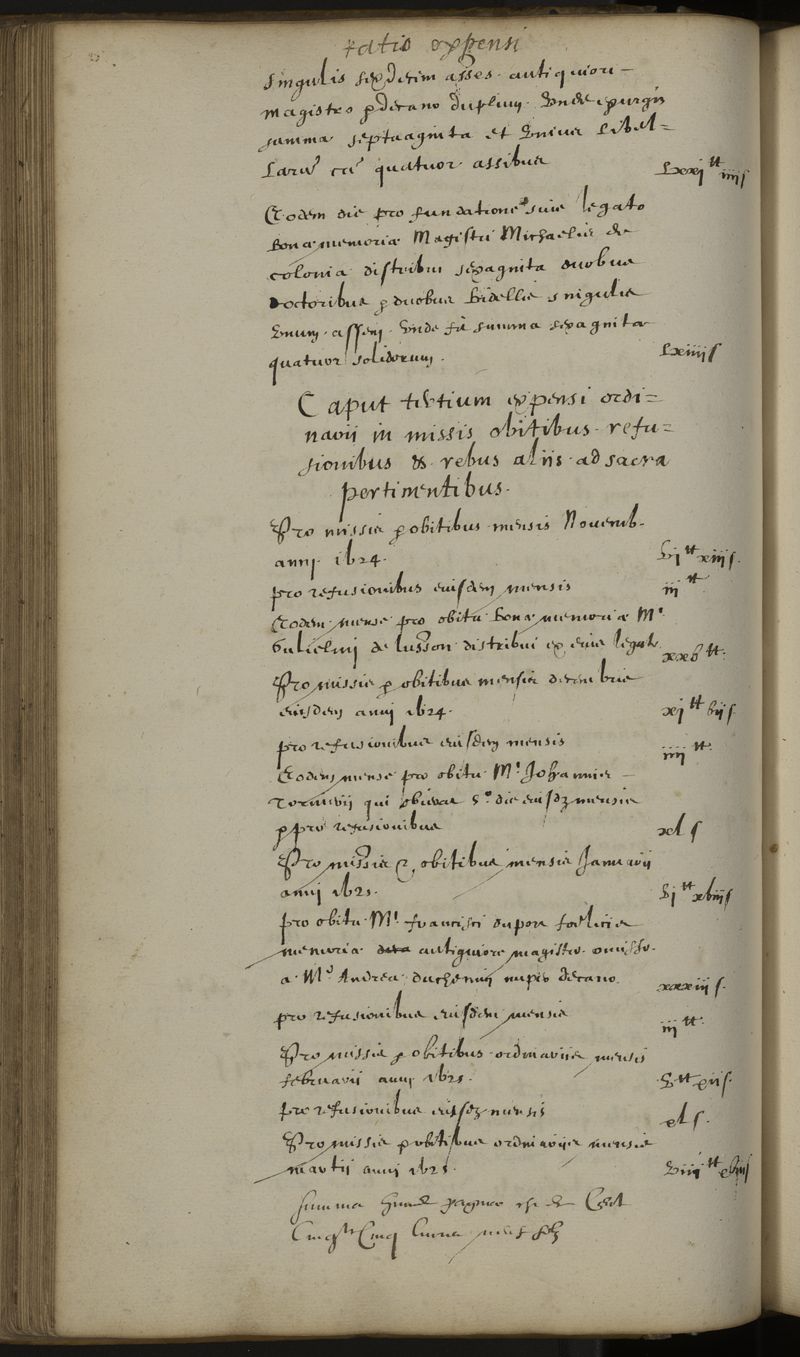 ratio expensi
singulis sexdecim asses. antiquiori
magistro & decano duplum. Unde
summa septuaginta et unius libel=
larum cum quatuor assibus
Lxxj tt iiij s
Eodem die pro fundatione sive legato
bonæ memoriæ Magistri Michaelis de
colonia distribui sexaginta duobus
doctoribus & duobus bidellis singulis
unum. assem. Unde fit summa sexaginta
quatuor solidorum.
Lxiiij s
Caput tertium expensi ordi=
narii in missis obitibus. refu=
sionibus & rebus aliis. ad sacra
pertinentibus.
Pro missis & obitibus mensis Novemb.
anni 1624.
vj tt xiiij s.
pro refusionibus eiusdem mensis
iij tt
Eodem mense pro obitu bonæ memoriæ Mri
Gulielmi de lusson distribui ex eius legat
xxv tt.
Pro missis & obitibus mensis decembris
eiusdem anni 1624.
xj tt vij s
pro refusionibus eiusdem mensis
iiij tt.
Eodem mense pro obitu Mri Johannis
qui obierat 5o die eiusdem mensis
& pro refusionibus
xl s
Pro missis & obitibus mensis Januarii
anni 1625.
vj tt xviij s
pro obitu Mri francisci dupon fœlicis
memoriæ antiquiore magistro. omisso.
a Mro Andrea duchemin nuper decano.
xxxiij s.
pro refusionibus eiusdem mensis
iij tt.
Pro missis & obitibus ordinariis mensis
februarii anni 1625.
v tt xii s.
pro refusionibus eiusdem mensis
xl s.
Pro missis & obitibus ordinariis mensis
martii anni 1625.
viij tt xviij s
Summa
Cinq livres neuf solz